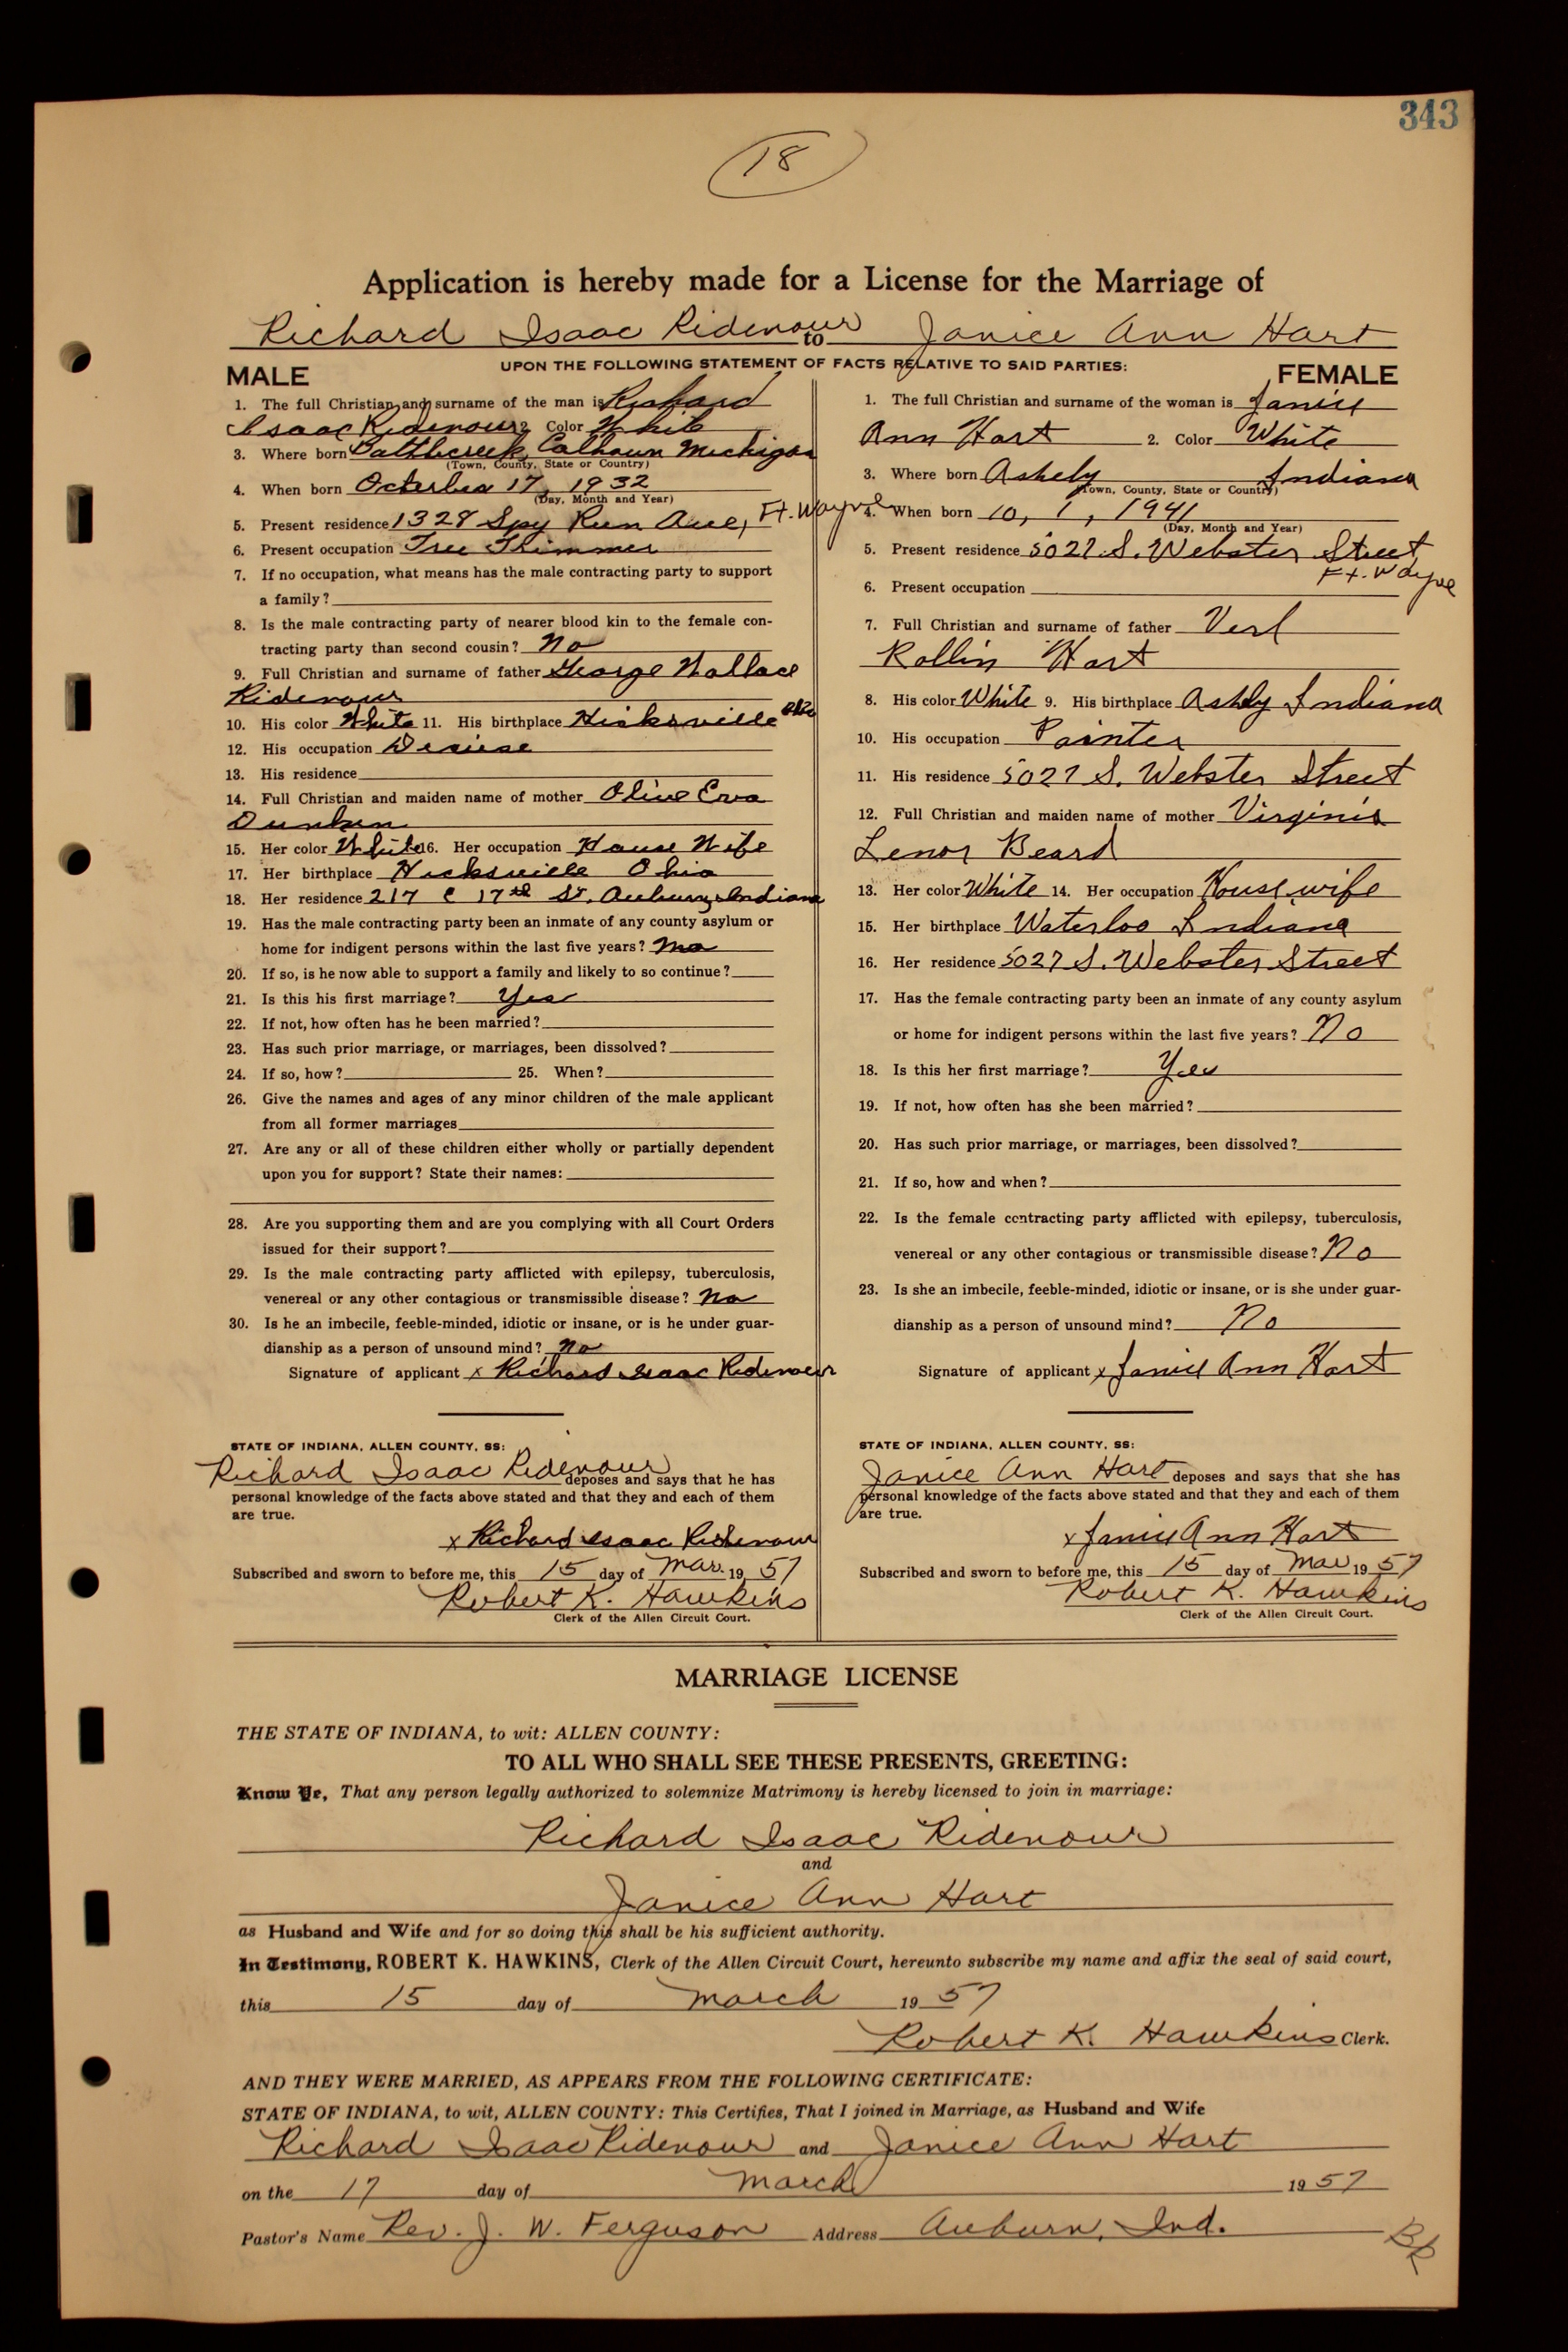 343
18
Application is hereby made for a License for the Marriage of
Richard Isaac Ridenour to Janice Ann Hart
UPON THE FOLLOWING STATEMENT OF FACTS RELATIVE TO SAID PARTIES:
MALE
1. The full Christian and surname of the man is Richard
Isaac Ridenour 2. Color White
3. Where born Battlecreek, Calhoun Michigan
(Town, County, State or Country)
4. When born October 17, 1932
(Day, Month and Year)
5. Present residence 1328 Spy Run Ave, Ft. Wayne
6. Present occupation Tree Trimmer
7. If no occupation, what means has the male contracting party to support
a family?
8. Is the male contracting party of nearer blood kin to the female con-
tracting party than second cousin? No
9. Full Christian and surname of father George Wallace
Ridenour
10. His color White 11. His birthplace Hicksville Ohio
12. His occupation
13. His residence
14. Full Christian and maiden name of mother Olive Eva
15. Her color White 16. Her occupation House Wife
17. Her birthplace Hicksville Ohio
18. Her residence 217 E 17th St. Auburn, Indiana
19. Has the male contracting party been an inmate of any county asylum or
home for indigent persons within the last five years? No
20. If so, is he now able to support a family and likely to so continue?
21. Is this his first marriage? Yes
22. If not, how often has he been married?
23. Has such prior marriage, or marriages, been dissolved?
24. If so, how? 25. When?
26. Give the names and ages of any minor children of the male applicant
from all former marriages
27. Are any or all of these children either wholly or partially dependent
upon you for support? State their names:
28. Are you supporting them and are you complying with all Court Orders
issued for their support?
29. Is the male contracting party afflicted with epilepsy, tuberculosis,
venereal or any other contagious or transmissible disease? No
30. Is he an imbecile, feeble-minded, idiotic or insane, or is he under guar-
dianship as a person of unsound mind? No
Signature of applicant x Richard Isaac Ridenour
STATE OF INDIANA, ALLEN COUNTY, SS:
Richard Isaac Ridenour deposes and says that he has
personal knowledge of the facts above stated and that they and each of them
are true.
x Richard Isaac Ridenour
Subscribed and sworn to before me, this 15 day of Mar. 19 57
Robert K. Hawkins
Clerk of the Allen Circuit Court.
FEMALE
1. The full Christian and surname of the woman is Janice
Ann Hart 2. Color White
3. Where born Ashely Indiana
(Town, County, State or Country)
4. When born 10, 1, 1941
(Day, Month and Year)
5. Present residence 5027 S. Webster Street
Ft. Wayne
6. Present occupation
7. Full Christian and surname of father Verl
Rollin Hart
8. His color White 9. His birthplace Ashly Indiana
10. His occupation Painter
11. His residence 5027 S. Webster Street
12. Full Christian and maiden name of mother Virginia
Lenor Beard
13. Her color White 14. Her occupation Housewife
15. Her birthplace Waterloo Indiana
16. Her residence 5027 S. Webster Street
17. Has the female contracting party been an inmate of any county asylum
or home for indigent persons within the last five years? No
18. Is this her first marriage? Yes
19. If not, how often has she been married?
20. Has such prior marriage, or marriages, been dissolved?
21. If so, how and when?
22. Is the female contracting party afflicted with epilepsy, tuberculosis,
venereal or any other contagious or transmissible disease? No
23. Is she an imbecile, feeble-minded, idiotic or insane, or is she under guar-
dianship as a person of unsound mind? No
Signature of applicant x Janice Ann Hart
STATE OF INDIANA, ALLEN COUNTY, SS:
Janice Ann Hart deposes and says that she has
personal knowledge of the facts above stated and that they and each of them
are true.
x Janice Ann Hart
Subscribed and sworn to before me, this 15 day of Mar 19 57
Robert K. Hawkins
Clerk of the Allen Circuit Court.
MARRIAGE LICENSE
THE STATE OF INDIANA, to wit: ALLEN COUNTY:
TO ALL WHO SHALL SEE THESE PRESENTS, GREETING:
Know Ye, That any person legally authorized to solemnize Matrimony is hereby licensed to join in marriage:
Richard Isaac Ridenour
and
Janice Ann Hart
as Husband and Wife and for so doing this shall be his sufficient authority.
In Testimony, ROBERT K. HAWKINS, Clerk of the Allen Circuit Court, hereunto subscribe my name and affix the seal of said court,
this 15 day of March 19 57
Robert K. Hawkins Clerk.
AND THEY WERE MARRIED, AS APPEARS FROM THE FOLLOWING CERTIFICATE:
STATE OF INDIANA, to wit, ALLEN COUNTY: This Certifies, That I joined in Marriage, as Husband and Wife
Richard Isaac Ridenour and Janice Ann Hart
on the 17 day of March 19 57
Pastor's Name Rev. J. W. Ferguson Address Auburn, Ind.